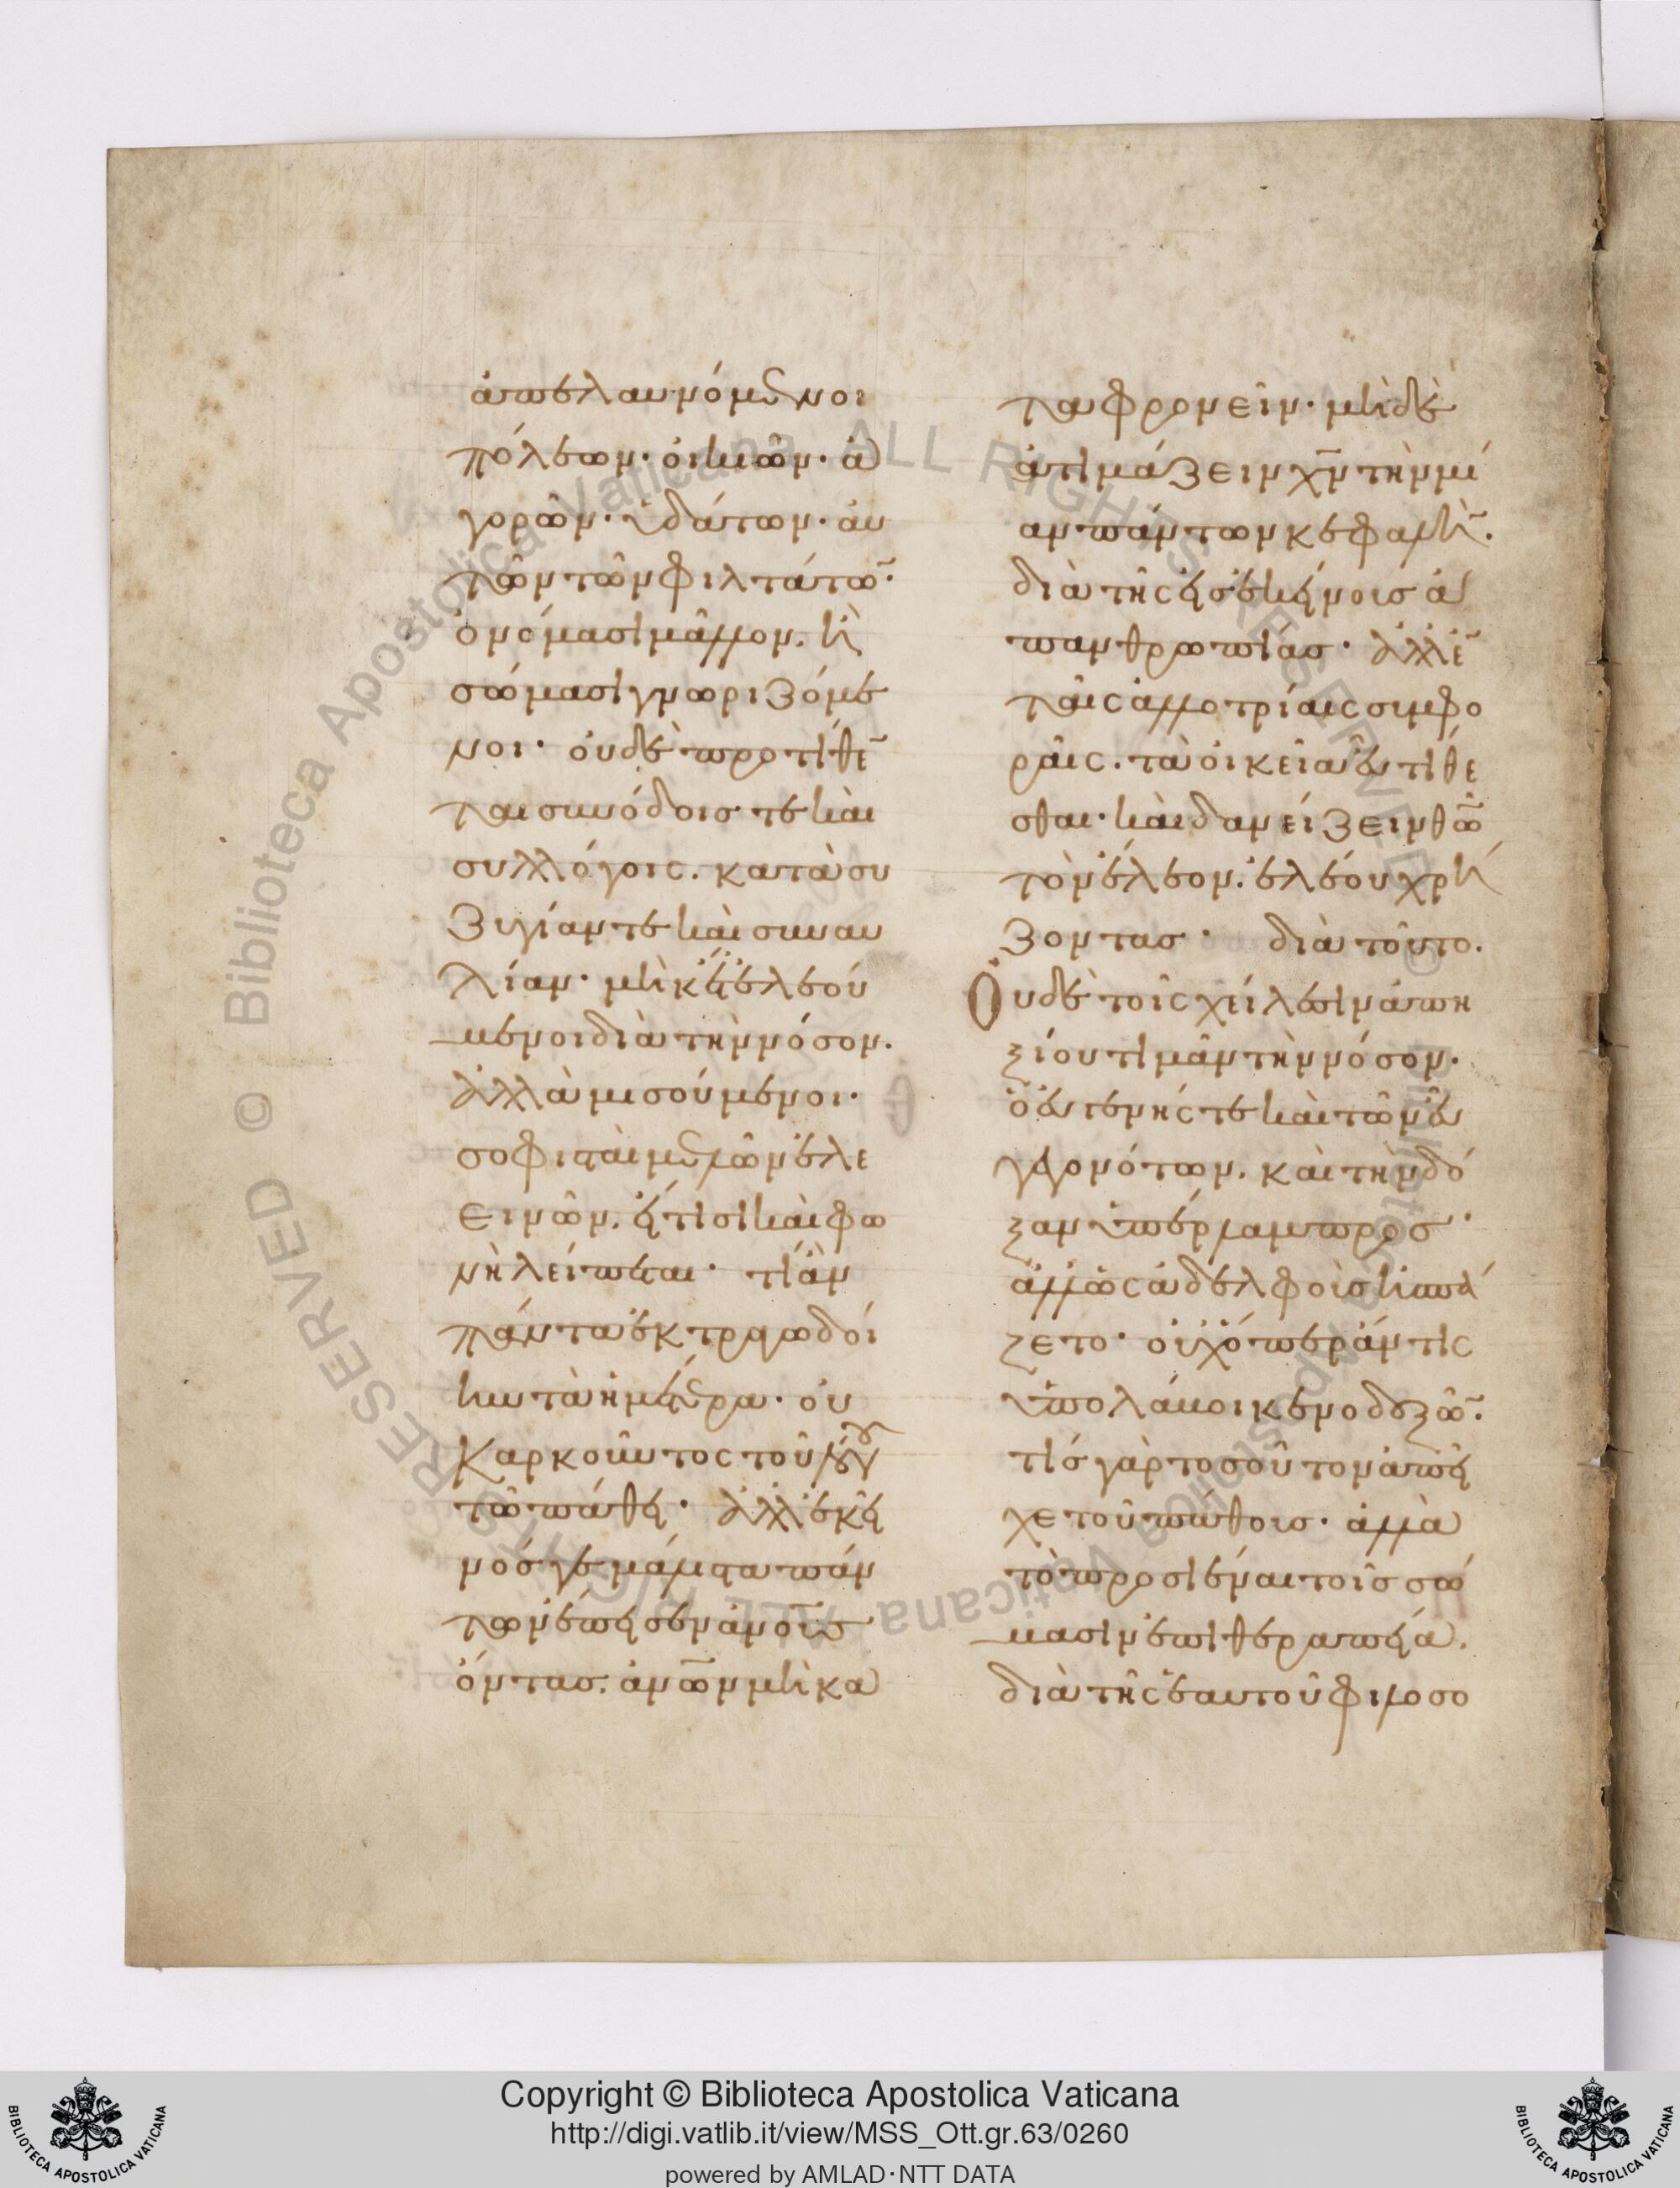 ἀπελαυνόμενοι
πόλεων· οἰκιῶν· ἀ
γορῶν· ὑδάτων· αὐ
τῶν τῶν φιλτάτω̄·
ὀνόμασι μᾶλλον. ἢ
σώμασι γνωριζόμε
νοι· οὐδὲ προτίθε̄
ται συνόδοις τε καὶ
συλλόγοις. κατὰ συ
ζυγίαν τε καὶ συναυ
λίαν· μηκέτ' ἐλεού
μενοι διὰ τὴν νόσον.
ἀλλὰ μισούμενοι·
σοφισταὶ μελῶν ἐλε
εινῶν. εἴ τισι καὶ φω
νὴ λείπεται· τί ἂν
πάντα ἐκτραγωδοί
ην τὰ ἡμέτερα· οὐ
κ ἀρκοῦντος τοῦ λόγου
τῶ πάθει· ἀλλ' ἐκεῖ
νός γε μάλιστα πάν
των ἔπεισεν ἀνο̄υς
ὄντας. ἀνω̄ν μὴ κα
ταφρονεῖν· μὴ δὲ
ἀτιμάζειν χ̄ν τὴν μί
αν πάντων κεφαλή̄.
διὰ τῆς εἰς ἐκείνους ἀ
πανθρωπίας· ἀλλ' ἐ̄
ταῖς ἀλλοτρίαις συμφο
ραῖς. τὰ οἰκεῖα εὖ τίθε
σθαι· καὶ δανείζειν θ̄ω
τὸν ἔλεον. ἐλέου χρή
ζοντας· διὰ τοῦτο.
Οὐδὲ τοῖς χείλεσιν ἀπη
ξίου τιμᾶν τὴν νόσον·
ὁ εὐγενής τε καὶ τῶν εὖ
γεγονότων. καὶ τὴν δό
ξαν ὑπέρλαμπρος·
ἀλλ' ὡς ἀδελφοὺς ἠσπά
ζετο· οὐχ ὅπερ ἄν τις
ὑπολάβοι κενοδοξῶ̄·
τίς γὰρ τοσοῦτον ἀπεῖ
χε τοῦ πάθους· ἀλλὰ
τὸ προσιέναι τοῖς σώ
μασιν ἐπὶ θεραπεία.
διὰ τῆς ἑαυτοῦ φιλοσο
Copyright © Biblioteca Apostolica Vaticana
http://digi.vatlib.it/view/MSS_Ott.gr.63/0260
powered by AMLAD·NTT DATA
BIBLIOTECA APOSTOLICA VATICANA
BIBLIOTECA APOSTOLICA VATICANA